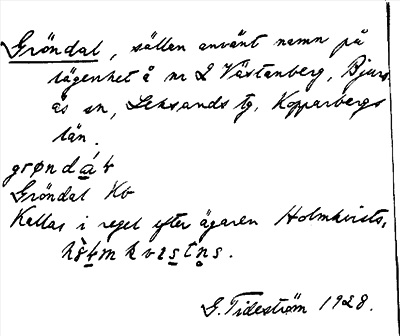 Gröndal, sällan använt namn på
lägenhet å nr 2 Västanberg, Bjurs-
ås sn, Leksands tg, Kopparbergs
län.
grønd̲á̲ɫ
Gröndal Kb
Kallas i regel efter ägaren Holmkvists,
hɷ̀lm kvɪstn̥s.
G. Tideström 1928.